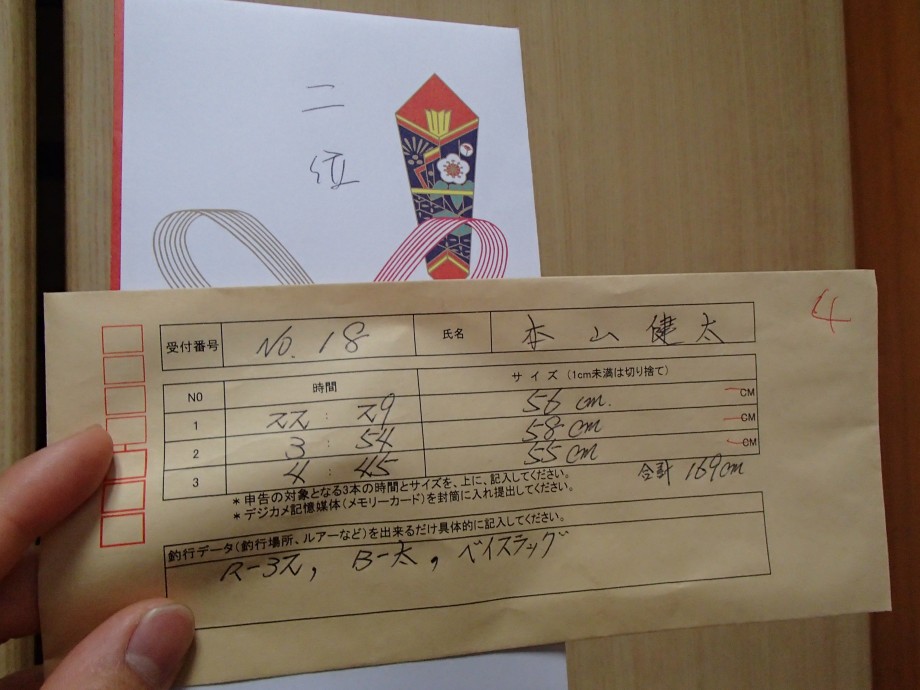 二
位
4
受付番号 NO. 18 氏名 本山健太
NO 時間 サイズ (1cm未満は切り捨て)
1 22:29 56 cm. CM
2 3:54 58 cm CM
3 4:45 55 cm CM
合計 169cm
*申告の対象となる3本の時間とサイズを、上に、記入してください。
*デジカメ記憶媒体(メモリーカード)を封筒に入れ提出してください。
釣行データ(釣行場所、ルアーなど)を出来るだけ具体的に記入してください。
R-32, B-太, ベイスラッグ